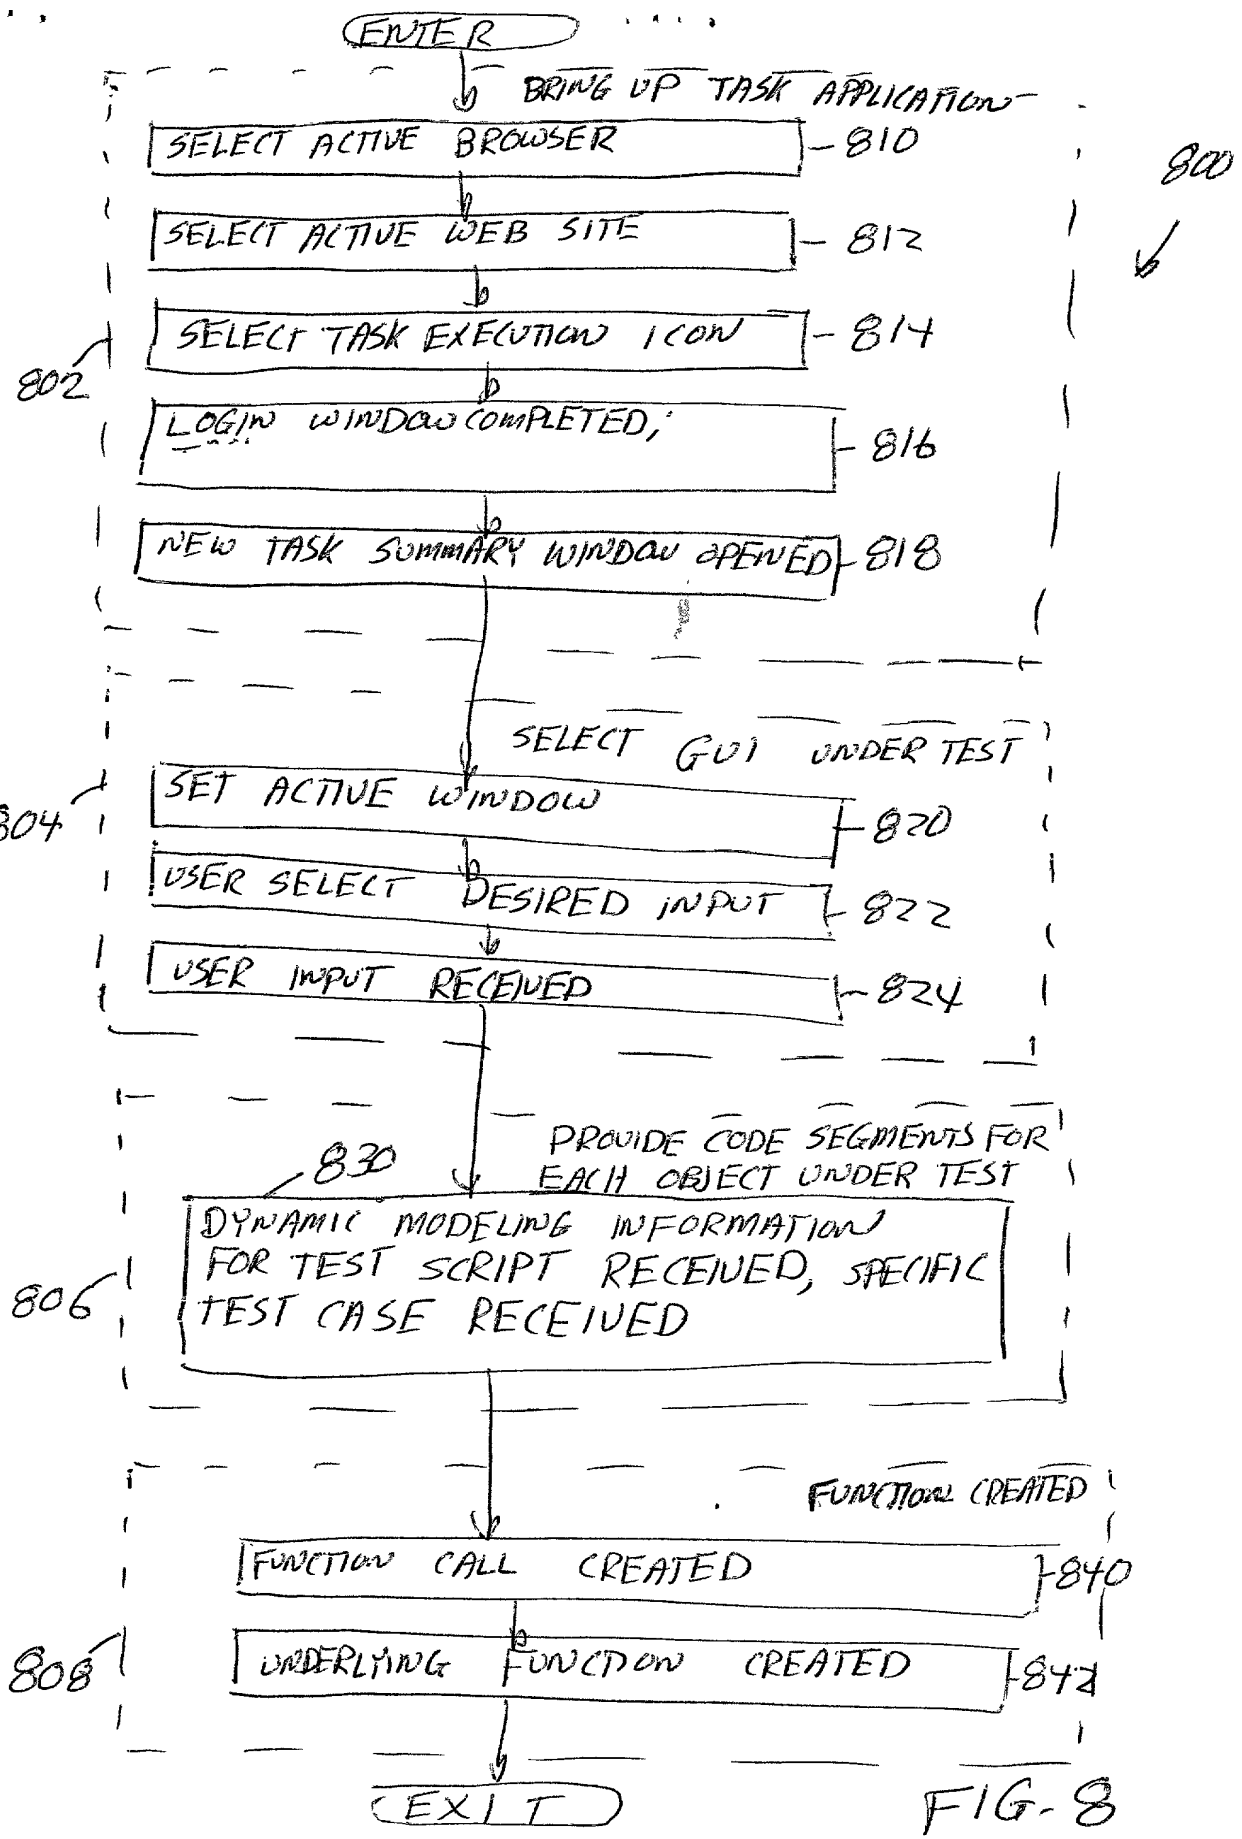 ENTER
BRING UP TASK APPLICATION
SELECT ACTIVE BROWSER
810
800
SELECT ACTIVE WEB SITE
812
SELECT TASK EXECUTION ICON
814
802
LOGIN WINDOW COMPLETED;
816
NEW TASK SUMMARY WINDOW OPENED
818
SELECT GUI UNDER TEST
SET ACTIVE WINDOW
820
804
USER SELECT DESIRED INPUT
822
USER INPUT RECEIVED
824
PROVIDE CODE SEGMENTS FOR
EACH OBJECT UNDER TEST
830
DYNAMIC MODELING INFORMATION
FOR TEST SCRIPT RECEIVED, SPECIFIC
TEST CASE RECEIVED
806
FUNCTION CREATED
FUNCTION CALL CREATED
840
UNDERLYING FUNCTION CREATED
842
808
EXIT
FIG. 8